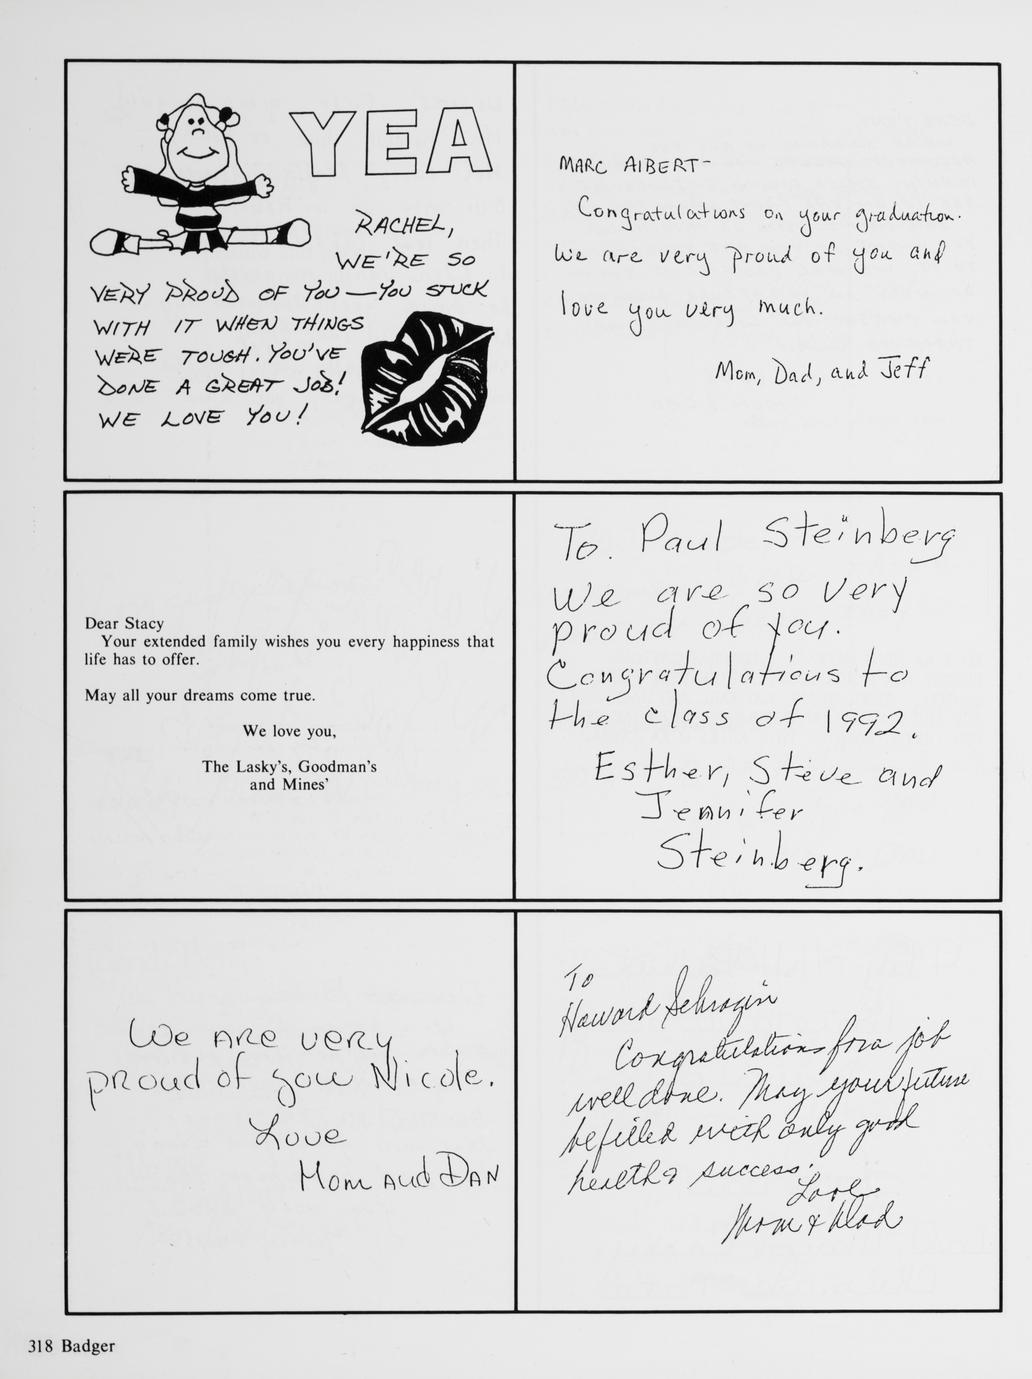 YEA
RACHEL,
WE'RE SO
VERY PROUD OF YOU—YOU STUCK
WITH IT WHEN THINGS
WERE TOUGH. YOU'VE
DONE A GREAT JOB!
WE LOVE YOU!
MARC AIBERT-
Congratulations on your graduation.
We are very proud of you and
love you very much.
Mom, Dad, and Jeff
Dear Stacy
Your extended family wishes you every happiness that
life has to offer.
May all your dreams come true.
We love you,
The Lasky's, Goodman's
and Mines'
To. Paul Steinberg
We are so very
proud of you.
Congratulations to
the class of 1992.
Esther, Steve and
Jennifer
Steinberg.
We are very
proud of you Nicole.
Love
Mom and Dan
To
Howard Schragin
Congratulations for a job
well done. May your future
be filled with only good
health & success.
Love
Mom & Dad
318 Badger